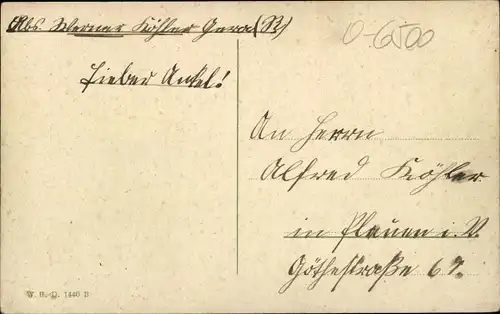 Abs. Werner Köhler Gera (R)
0-6500
Lieber Onkel!
An Herrn
Alfred Köhler
in Plauen i. V.
Göthestraße 67.
W. H.-D. 1440 B